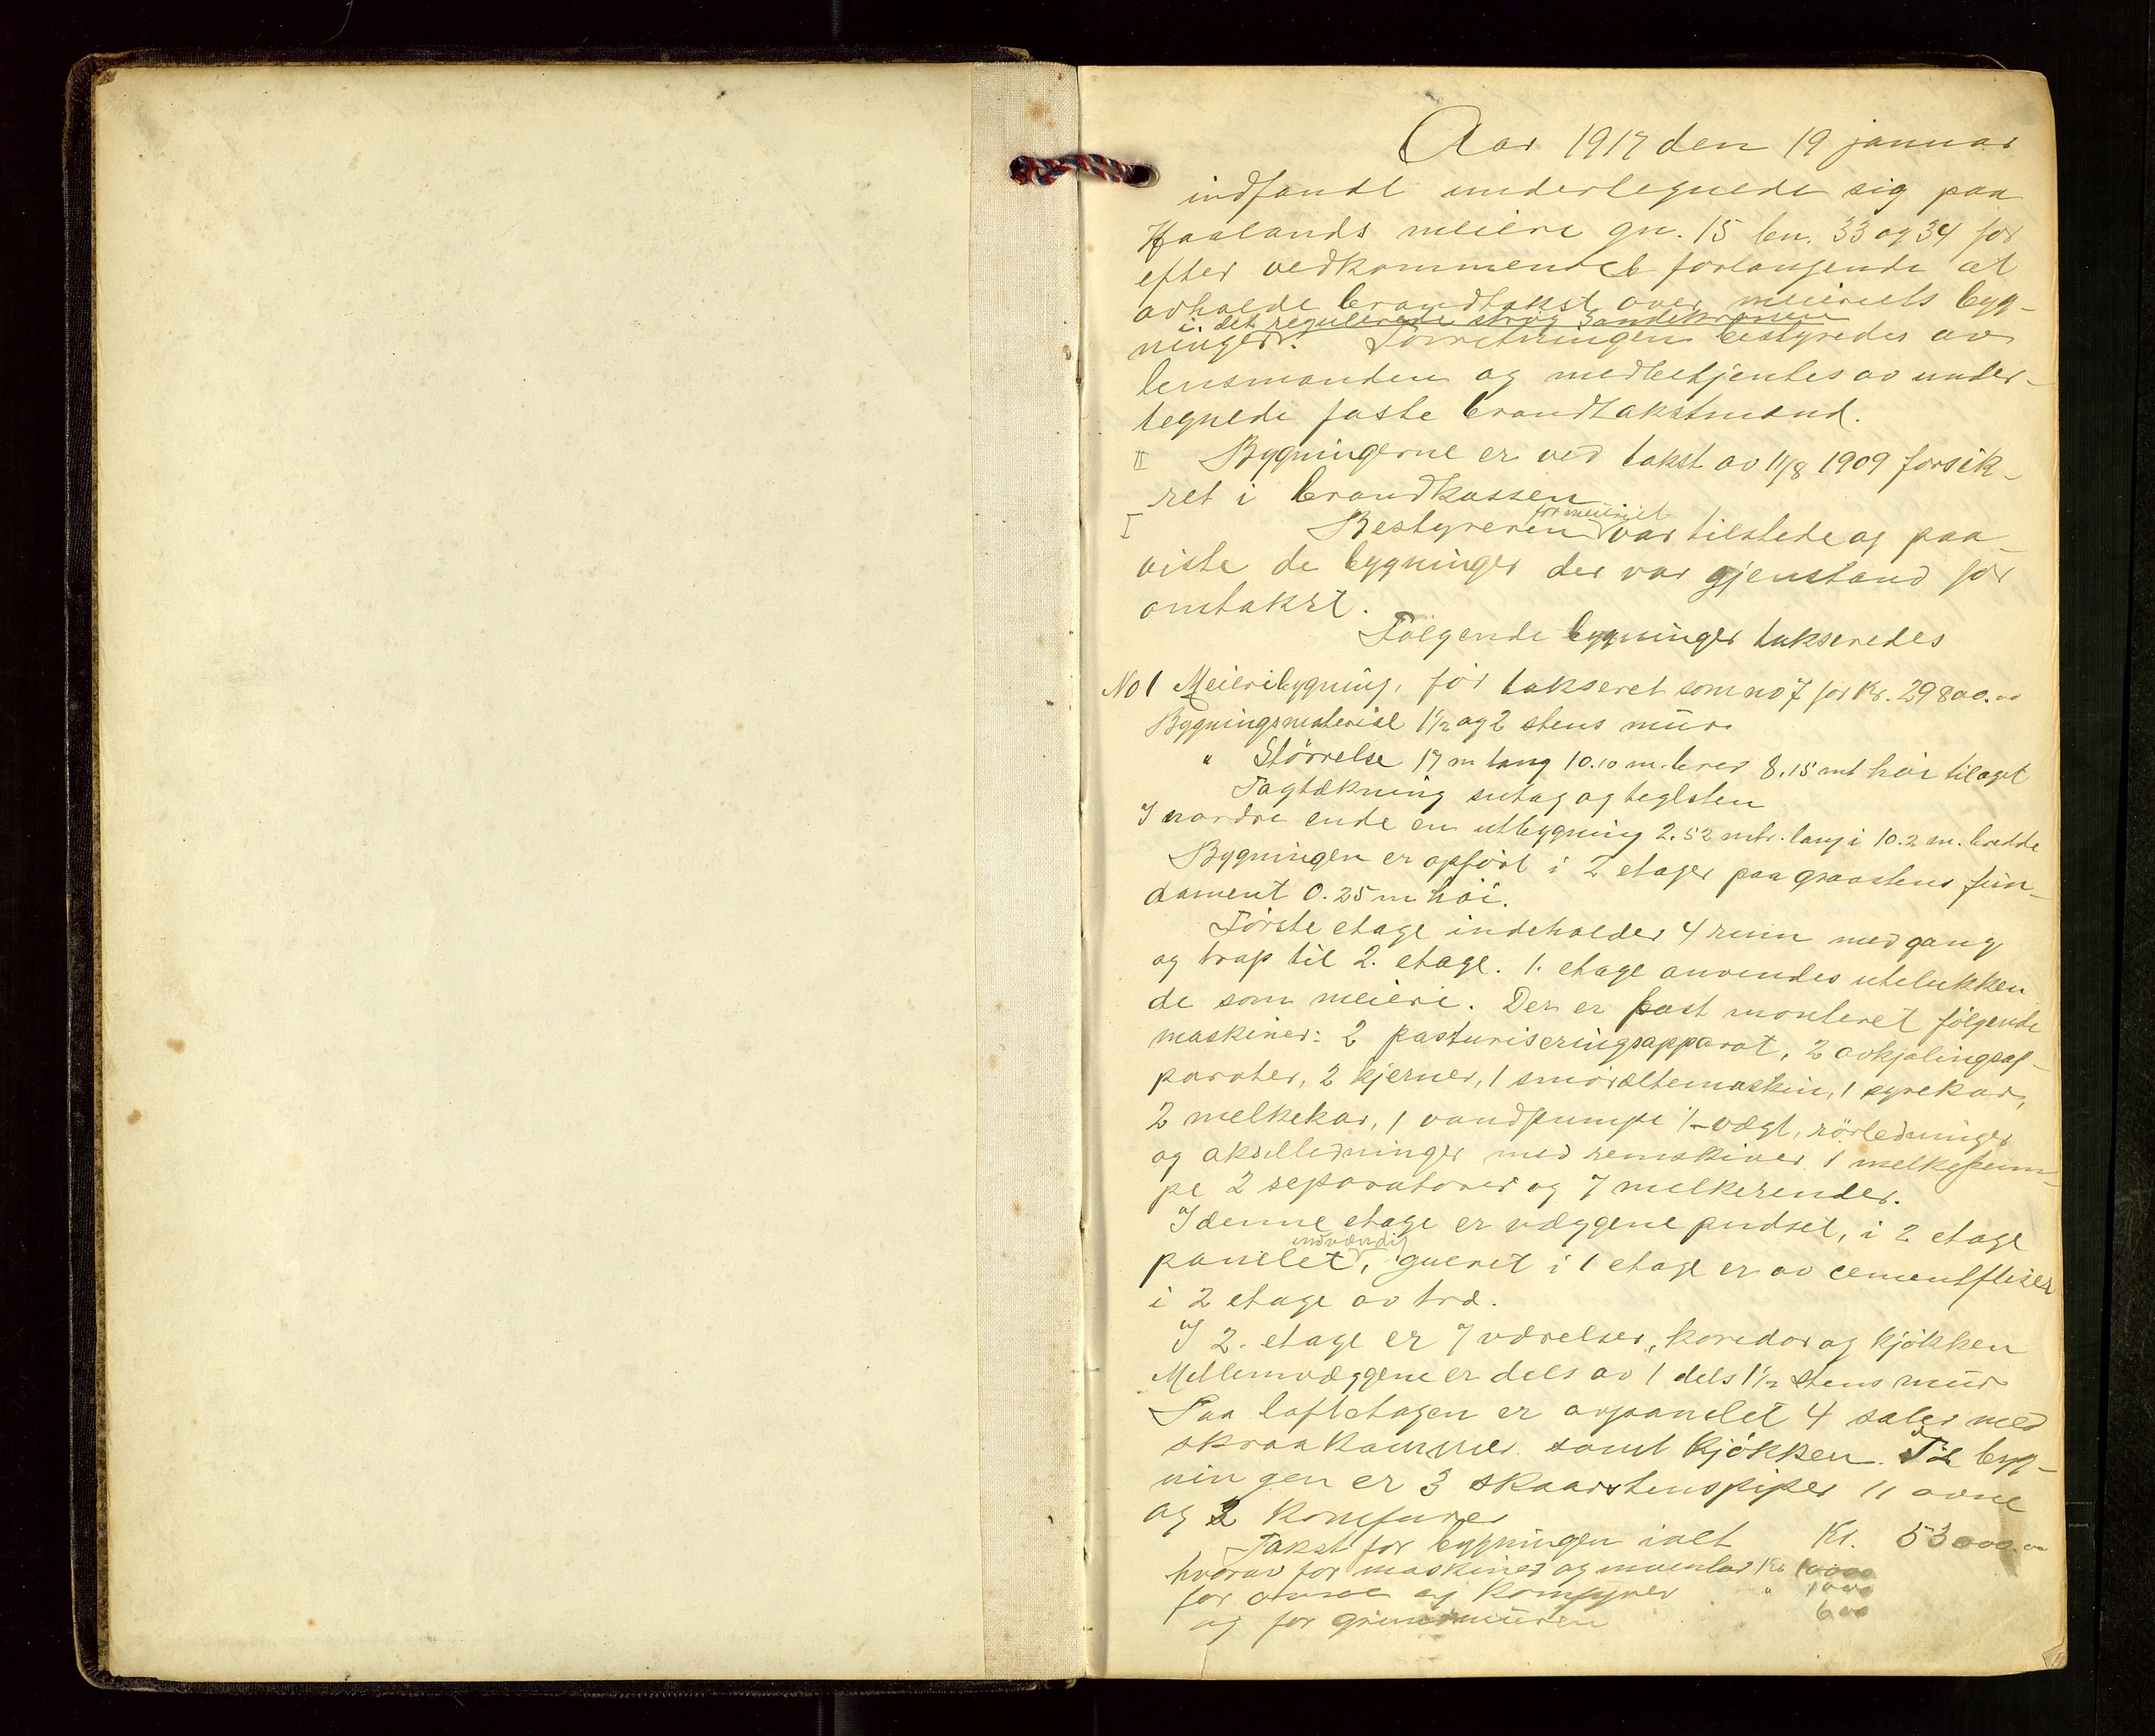 Aar 1917 den 19 januar
indfandt undertegnede sig paa
Haalands meieri gn. 15 bn. 33 og 34 for
efter vedkommendes forlangende at
avholde brandtakst over meieriets byg-
i det regulerede strøg Sandekronen
ninger. Forretningen bestyredes av
lensmanden og medbetjentes av under-
tegnede faste brandtakstmænd.
II Bygningerne er ved takst av 11/8 1909 forsik-
ret i brandkassen
for meieriet
I Bestyreren var tilstede og paa-
viste de bygninger der var gjenstand for
omtakst.
Følgende bygninger takseredes
No 1 Meieribygning, før takseret som no 7 for Kr. 29800.00
Bygningsmateriel 1½ og 2 stens mur
" Størrelse 17 m lang 10.10 m. bred 8.15 mt høi til
Tagtækning sutag og teglsten
I nordre ende en utbygning 2.52 mtr. lang i 10.2 m. bredde
Bygningen er opført i 2 etager paa graastens fun-
dament 0.25 m høi.
Første etage indeholder 4 rum med gang
og trap til 2. etage. 1. etage anvendes utelukken
de som meieri. Der er fast monteret følgende
maskiner: 2 pasturiseringsapparat, 2 avkjølingsap-
parater, 2 kjerner, 1 smøræltemaskin, 1 syrekar,
2 melkekar, 1 vandpumpe 1 vægt, rørledninger
og akselledninger med remskiver 1 melkepum-
pe 2 separatorer og 7 melkerender.
I denne etage er væggene pudset, i 2 etage
indvændig
panelet, guevet i 1 etage er av cementfliser
i 2 etage av træ.
I 2. etage er 7 værelser, koredor og kjøkken
Mellemvæggene er dels av 1 dels 1½ stens mur
Paa loftetagen er avpanelet 4 saler med
skraakammer samt kjøkken. Til byg-
ningen er 3 skaarstenspiper 11 ovne
og 2 komfurer
Takst for bygningen ialt Kr. 53000.00
hvorav for maskiner og inventar Kr 10000
for ovne og komfyrer " 1000
og for grundmuren 600